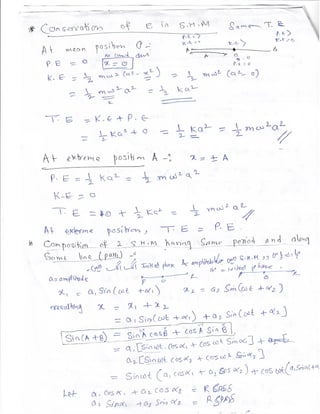 * Conservation of E in S.H.M Same T.E
At mean position O -:
P.E = 0 x = 0
K.E = 1/2 mω² (a² - x²) = 1/2 mω² (a² - 0)
= 1/2 mω² a² = 1/2 ka²
T.E = K.E + P.E
= 1/2 Ka² + 0 = 1/2 Ka² = 1/2 mω²a²
At extreme position A -: x = ± A
P.E = 1/2 Ka² = 1/2 mω²a²
K.E = 0
T.E = 0 + 1/2 Ka² = 1/2 mω²a²
At extreme position, T.E = P.E
Composition of 2 S.H.M having Same period and along
Same line (path) -:
a = amplitude
x₁ = a₁ Sin (ωt + α₁) x₂ = a₂ Sin (ωt + α₂)
resulting x = x₁ + x₂
= a₁ Sin (ωt + α₁) + a₂ Sin (ωt + α₂)
Sin (A + B) = Sin A cos B + cos A Sin B
= a₁ [Sin ωt . cos α₁ + cos ωt Sin α₁] +
a₂ [Sin ωt cos α₂ + cos ωt Sin α₂]
= Sin ωt (a₁ cos α₁ + a₂ cos α₂) + cos ωt (a₁ Sin α₁ +
Let a₁ cos α₁ + a₂ cos α₂ = R
a₁ Sin α₁ + a₂ Sin α₂ = R